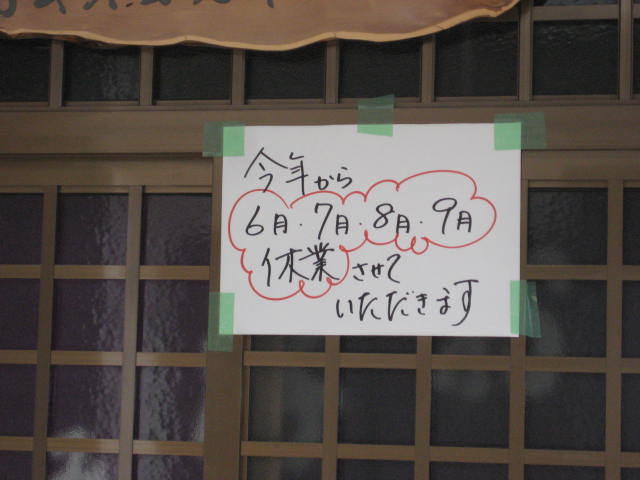 今年から
6月・7月・8月・9月
休業させて
いただきます